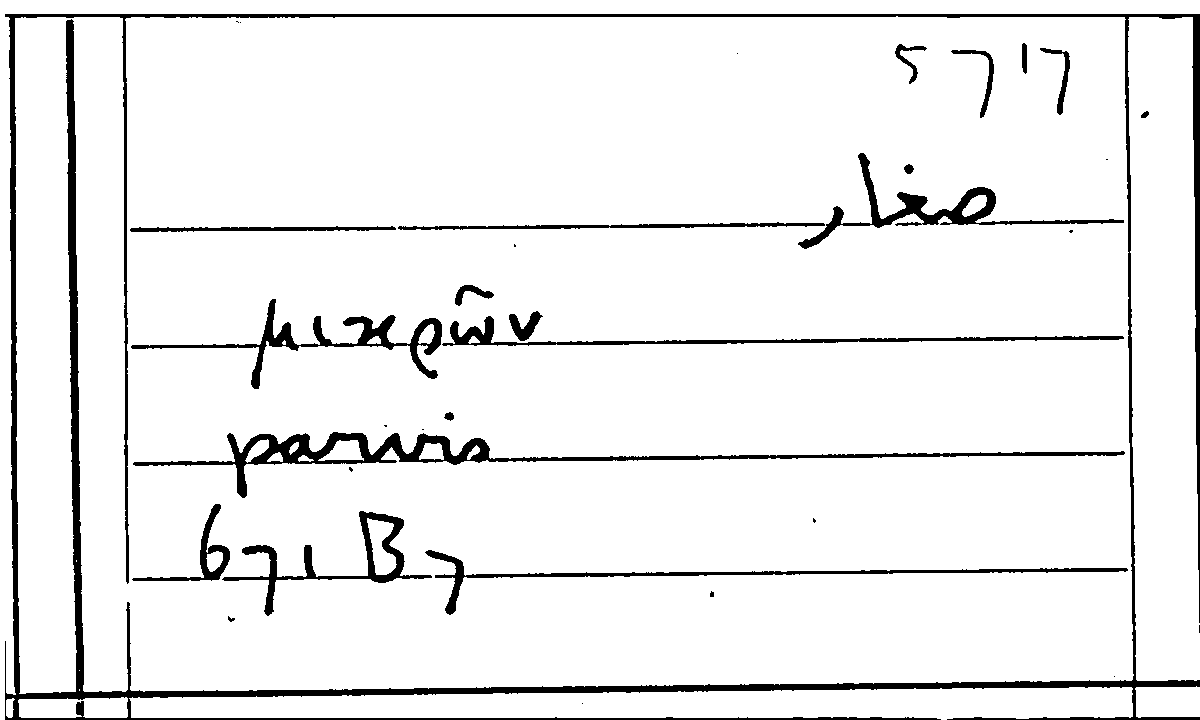 5717
صغار
μικρῶν
parvis
671 B 7